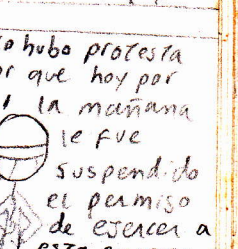 hubo protesta
or que hoy por
la mañana
le fue
suspendido
el permiso
de ejercer a